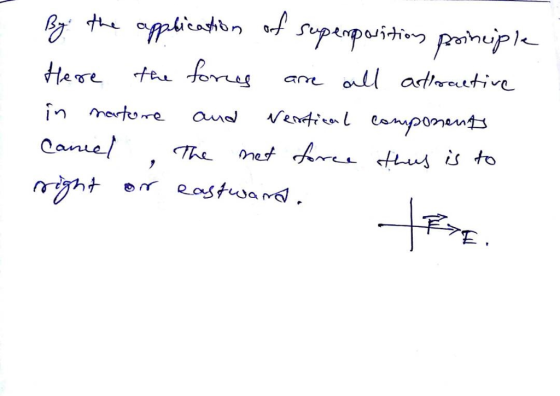 By the application of superposition principle
Here the forces are all attractive
in nature and vertical components
cancel , The net force thus is to
right or eastward.
F E.